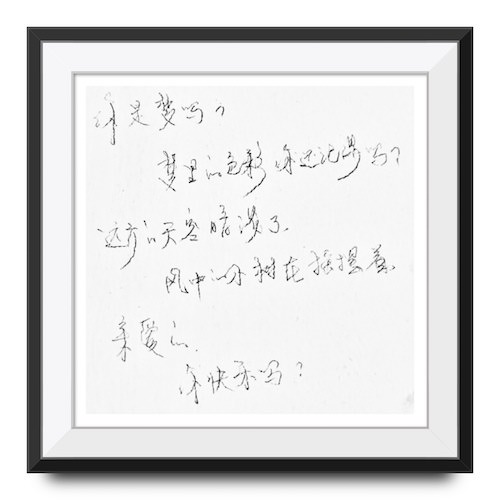 你是梦吗？
梦里的色彩你还记得吗？
远方的天空暗淡了，
风中的小树在摇摆着。
亲爱的，
你快乐吗？